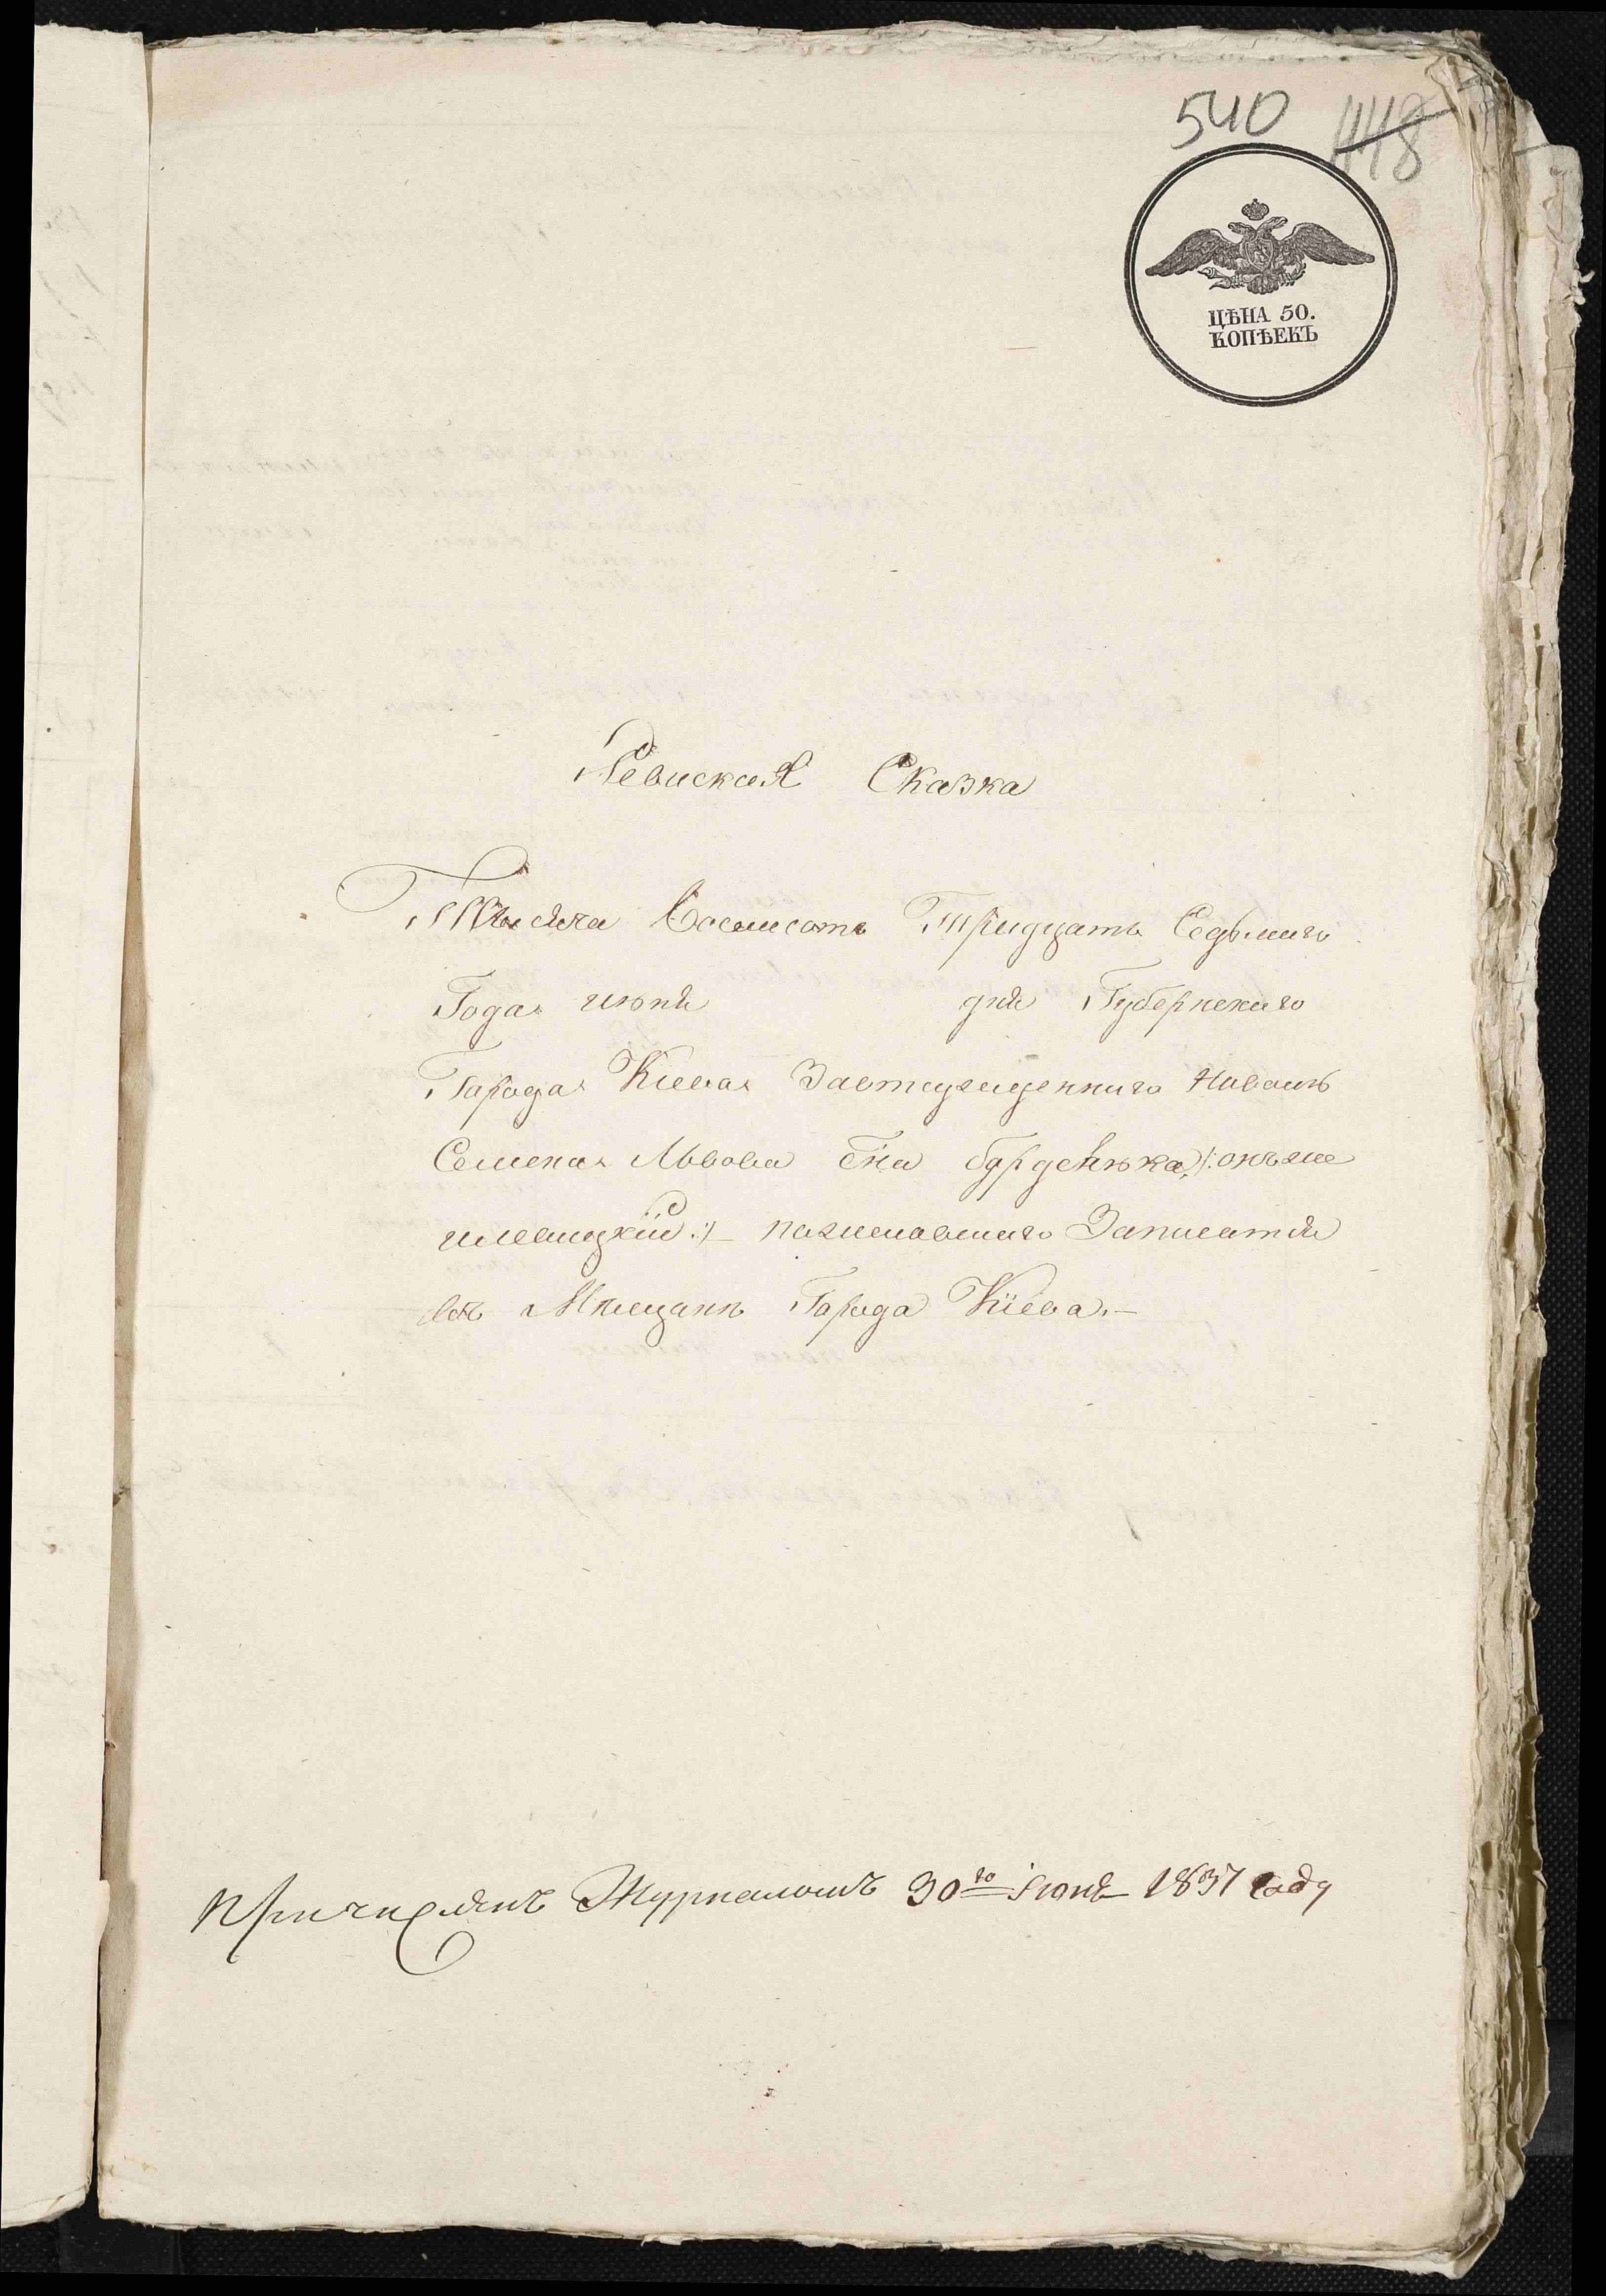 540 448
ЦѢНА 50.
КОПѢЕКЪ
Ревиская Сказка
Тысяча Восемсотъ Тридцать Седьмаго
Года июня дня Губернскаго
Города Киева
Семена Львова Сна :онъже
пожелавшаго Записатся
въ Мѣщанѣ Города Кіева.–
Причисленъ Журналомъ 30го Іюня 1837 году